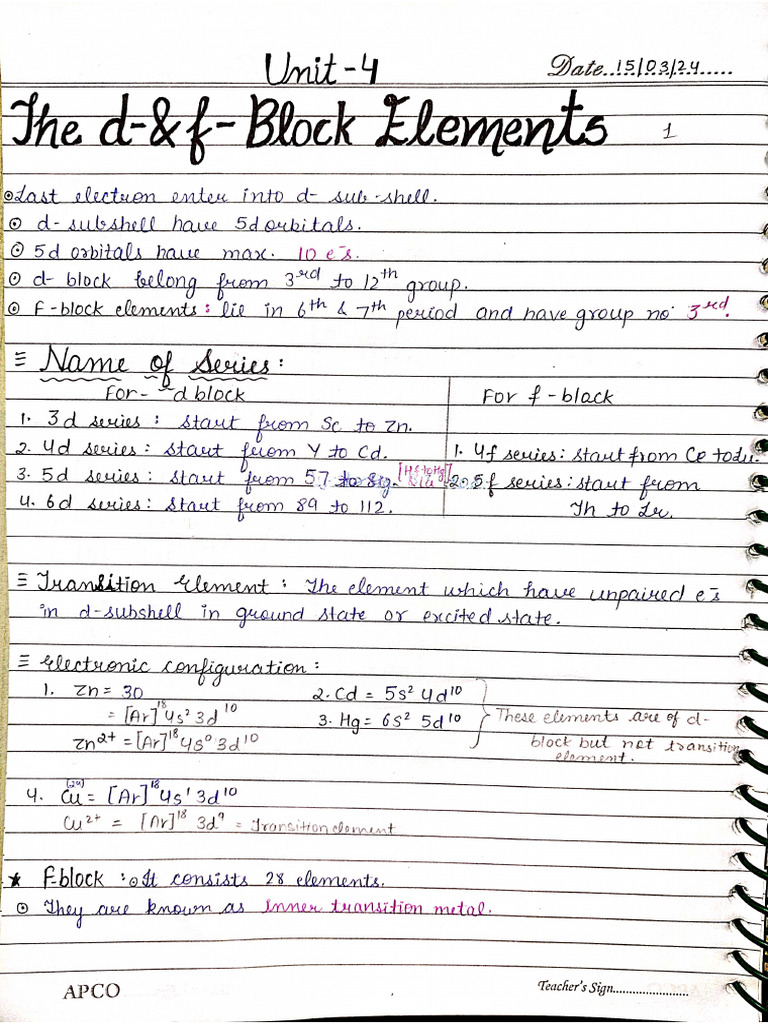 Unit-4
Date..15/03/24.....
The d-&f-Block Elements 1
⊙Last electron enter into d- sub-shell.
⊙ d-subshell have 5d orbitals.
⊙ 5d orbitals have max. 10 e⁻s.
⊙ d- block belong from 3rd to 12th group.
⊙ f-block elements: lie in 6th & 7th period and have group no. 3rd.
≡ Name of Series:
For- d block
For f-block
1. 3d series: start from Sc to Zn.
2. 4d series: start from Y to Cd.
3. 5d series: start from 57 to [Hf to Hg]
4. 6d series: start from 89 to 112.
1. 4f series: start from Ce to Lu.
2. 5f series: start from
Th to Lr.
≡ Transition Element: The element which have unpaired e⁻s
in d-subshell in ground state or excited state.
≡ Electronic configuration:
1. Zn = 30
= [Ar]¹⁸ 4s² 3d¹⁰
Zn²⁺ = [Ar]¹⁸ 4s⁰ 3d¹⁰
2. Cd = 5s² 4d¹⁰
3. Hg = 6s² 5d¹⁰
These elements are of d-
block but not transition
element.
4. Cu = [Ar]¹⁸ 4s¹ 3d¹⁰
Cu²⁺ = [Ar]¹⁸ 3d⁹ = Transition element
★ f-block: ⊙ It consists 28 elements.
⊙ They are known as inner transition metal.
APCO
Teacher's Sign........................